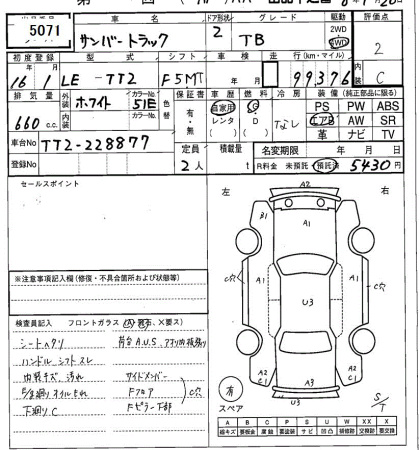 5071
車名 ドア形状 グレード 駆動 評価点
サンバートラック 2 TB 2WD 4WD 2
初度登録 型式 シフト 車検 走行(km・マイル) 内装
16 1 LE-TT2 F5MT 99376 C
排気量 外装 ホワイト カラーNo. 51E 色替 保証書 車歴 燃料 冷房 装備(純正部品に限る)
660 c.c. 内装 カラーNo. 有・無 自家用 レンタ G D なし PS PW ABS
エアB AW SR
革 ナビ TV
車台No TT2-228877 定員 積載量 名変期限 年 月 日
登録No 2人 t R料金 未預託 預託済 5430円
セールスポイント
左 右
A2
B1 A1
C穴 A1 A1 C穴
U3
A2 C1 A3 A2 C1
U3
※注意事項記入欄(修復・不具合箇所および状態等)
検査員記入 フロントガラス(A、飛石、X要ス)
シートヘタリ 荷台A.U.S.
ハンドル、シフトスレ
内装キズ、汚れ サイドメンバー
E/G廻りオイルもれ Fフロア C穴
下廻りC Fピラー下部
有 スペア S/T
A B C P S U W X XX
線キズ 要板金 腐蝕 要塗装 サビ 凹凸 補修跡 交換跡 要交換